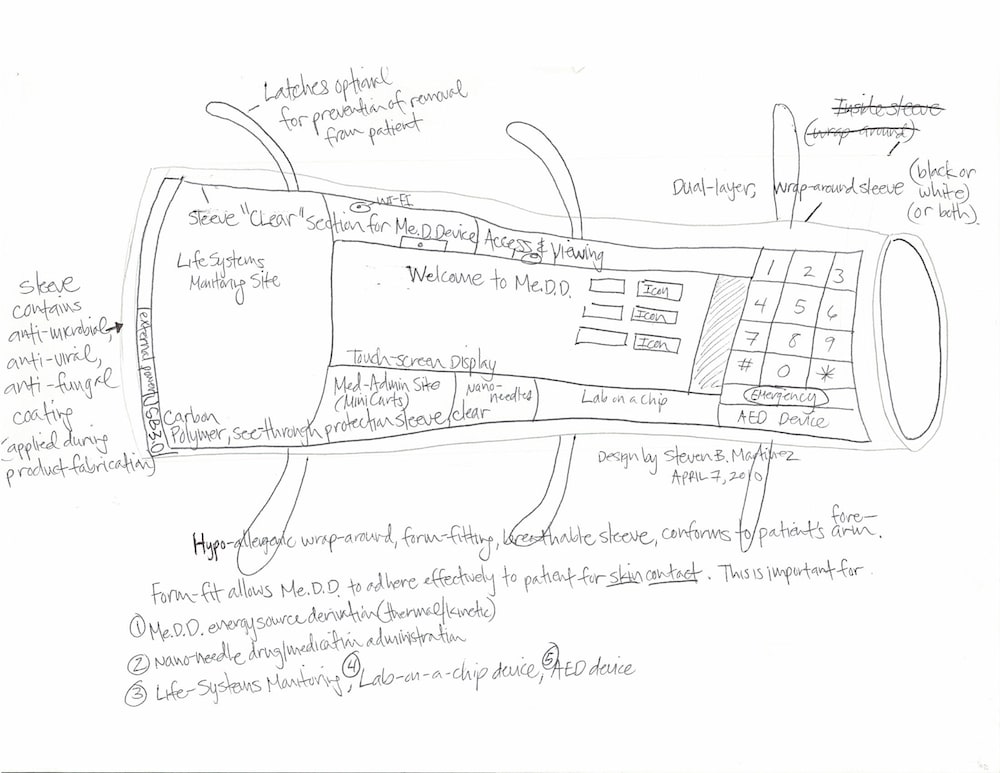 Latches optional
for prevention of removal
from patient
Inside sleeve
(wrap-around)
Dual-layer, wrap-around sleeve (black or
white)
(or both).
Sleeve "Clear" Section for Me.D.D. Device Access & Viewing
WI-FI
Life Systems
Monitoring Site
Welcome to Me.D.D.
Icon
Icon
Icon
1 2 3
4 5 6
7 8 9
# 0 *
Emergency
AED Device
Touch-screen Display
Med-Admin Site
(Mini Carts)
Nano-
needles
Lab on a chip
Carbon
Polymer, see-through protection sleeve, clear
external port USB 3.0
sleeve
contains
anti-microbial,
anti-viral,
anti-fungal
coating
(applied during
product fabrication)
Design by Steven B. Martinez
APRIL 7, 2010
Hypo-allergenic wrap-around, form-fitting, breathable sleeve, conforms to patient's fore-
arm.
Form-fit allows Me.D.D. to adhere effectively to patient for skin contact. This is important for
① Me.D.D. energy source derivation (thermal/kinetic)
② Nano-needle drug/medication administration
③ Life-Systems Monitoring, ④ Lab-on-a-chip device, ⑤ AED device